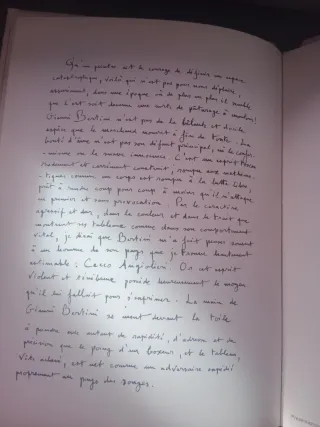 Qu'un peintre ait le courage de définir un espace
catastrophique, voilà qui n'est pas pour nous déplaire,
assurément, dans une époque où de plus en plus il semble
que l'art soit devenu une sorte de pâturage à moutons!
Gianni Bertini n'est pas de la bêlante et docile
espèce que le marchand nourrit à fin de tonte. La
bonté d'âme n'est pas son défaut principal, ni le confor-
-misme ou la niaise innocence. C'est un esprit
et carrément construit, rompu aux mathéma-
-tiques comme un corps est rompu à la lutte libre,
prêt à rendre coup pour coup à moins qu'il n'attaque
le premier et sans provocation. Par le caractère
agressif et dur, dans la couleur et dans le trait que
montrent ses tableaux comme dans son comportement
vital, je dirai que Bertini m'a fait penser souvent
à un homme de son pays que je trouve hautement
estimable: Cecco Angiolieri. Or cet esprit
violent et possède heureusement le moyen
qu'il lui fallait pour s'exprimer. La main de
Gianni Bertini se meut devant la toile
à peindre avec autant de rapidité, d'adresse et de
précision que le poing d'un boxeur, et le tableau,
vite achevé, est net comme un adversaire expédié
proprement au pays des songes.